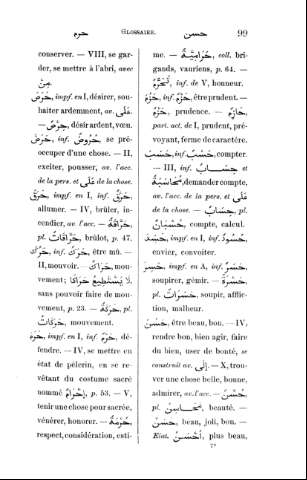 حرم GLOSSAIRE. حسن 99
conserver. — VIII, se gar-
der, se mettre à l'abri, avec
مِنْ.
حَرَصَ, impf. en I, désirer, sou-
haiter ardemment, av. عَلَى.
— حِرْصٌ, désir ardent, vœu.
حَرَضَ, inf. حُرُوضٌ, se pré-
occuper d'une chose. — II,
exciter, pousser, av. l'acc.
de la pers. et عَلَى de la chose.
حَرَقَ, impf. en I, inf. حَرْقٌ,
allumer. — IV, brûler, in-
cendier, av. l'acc. — حَرَّاقَةٌ,
pl. حَرَّاقَاتٌ, brûlot, p. 47.
حَرُكَ, inf. حَرْكٌ, être mû. —
II, mouvoir. — حَرَاكٌ, mou-
vement; لَا يَسْتَطِيعُ حَرَاكًا,
sans pouvoir faire de mou-
vement, p. 23. — حَرَكَةٌ, pl.
حَرَكَاتٌ, mouvement.
حَرَمَ, impf. en I, inf. حَرْمٌ, dé-
fendre. — IV, se mettre en
état de pèlerin, en se re-
vêtant du costume sacré
nommé إِحْرَامٌ, p. 53. — V,
tenir une chose pour sacrée,
vénérer, honorer. — حُرْمَةٌ,
respect, considération, esti-
me. — حَرَامِيَّةٌ, coll. bri-
gands, vauriens, p. 64. —
تَحَرُّمٌ, inf. de V, honneur.
حَزُمَ, inf. حَزْمٌ, être prudent. —
حَزْمٌ, prudence. — حَازِمٌ,
part. act. de I, prudent, pré-
voyant, ferme de caractère.
حَسَبَ, inf. حَسْبٌ, compter.
— III, inf. حِسَابٌ et
مُحَاسَبَةٌ, demander compte,
av. l'acc. de la pers. et عَلَى
de la chose. — حِسَابٌ, pl.
حُسْبَانٌ, compte, calcul.
حَسَدَ, impf. en I, inf. حُسُودٌ,
envier, convoiter.
حَسِرَ, impf. en A, inf. حَسَرٌ,
soupirer, gémir. — حَسْرَةٌ,
pl. حَسَرَاتٌ, soupir, afflic-
tion, malheur.
حَسُنَ, être beau, bon. — IV,
rendre bon, bien agir, faire
du bien, user de bonté, se
construit av. إِلَى. — X, trou-
ver une chose belle, bonne,
admirer, av. l'acc. — حُسْنٌ,
pl. مَحَاسِنٌ, beauté. —
حَسَنٌ, beau, joli, bon. —
Elat. أَحْسَنُ, plus beau,
7*